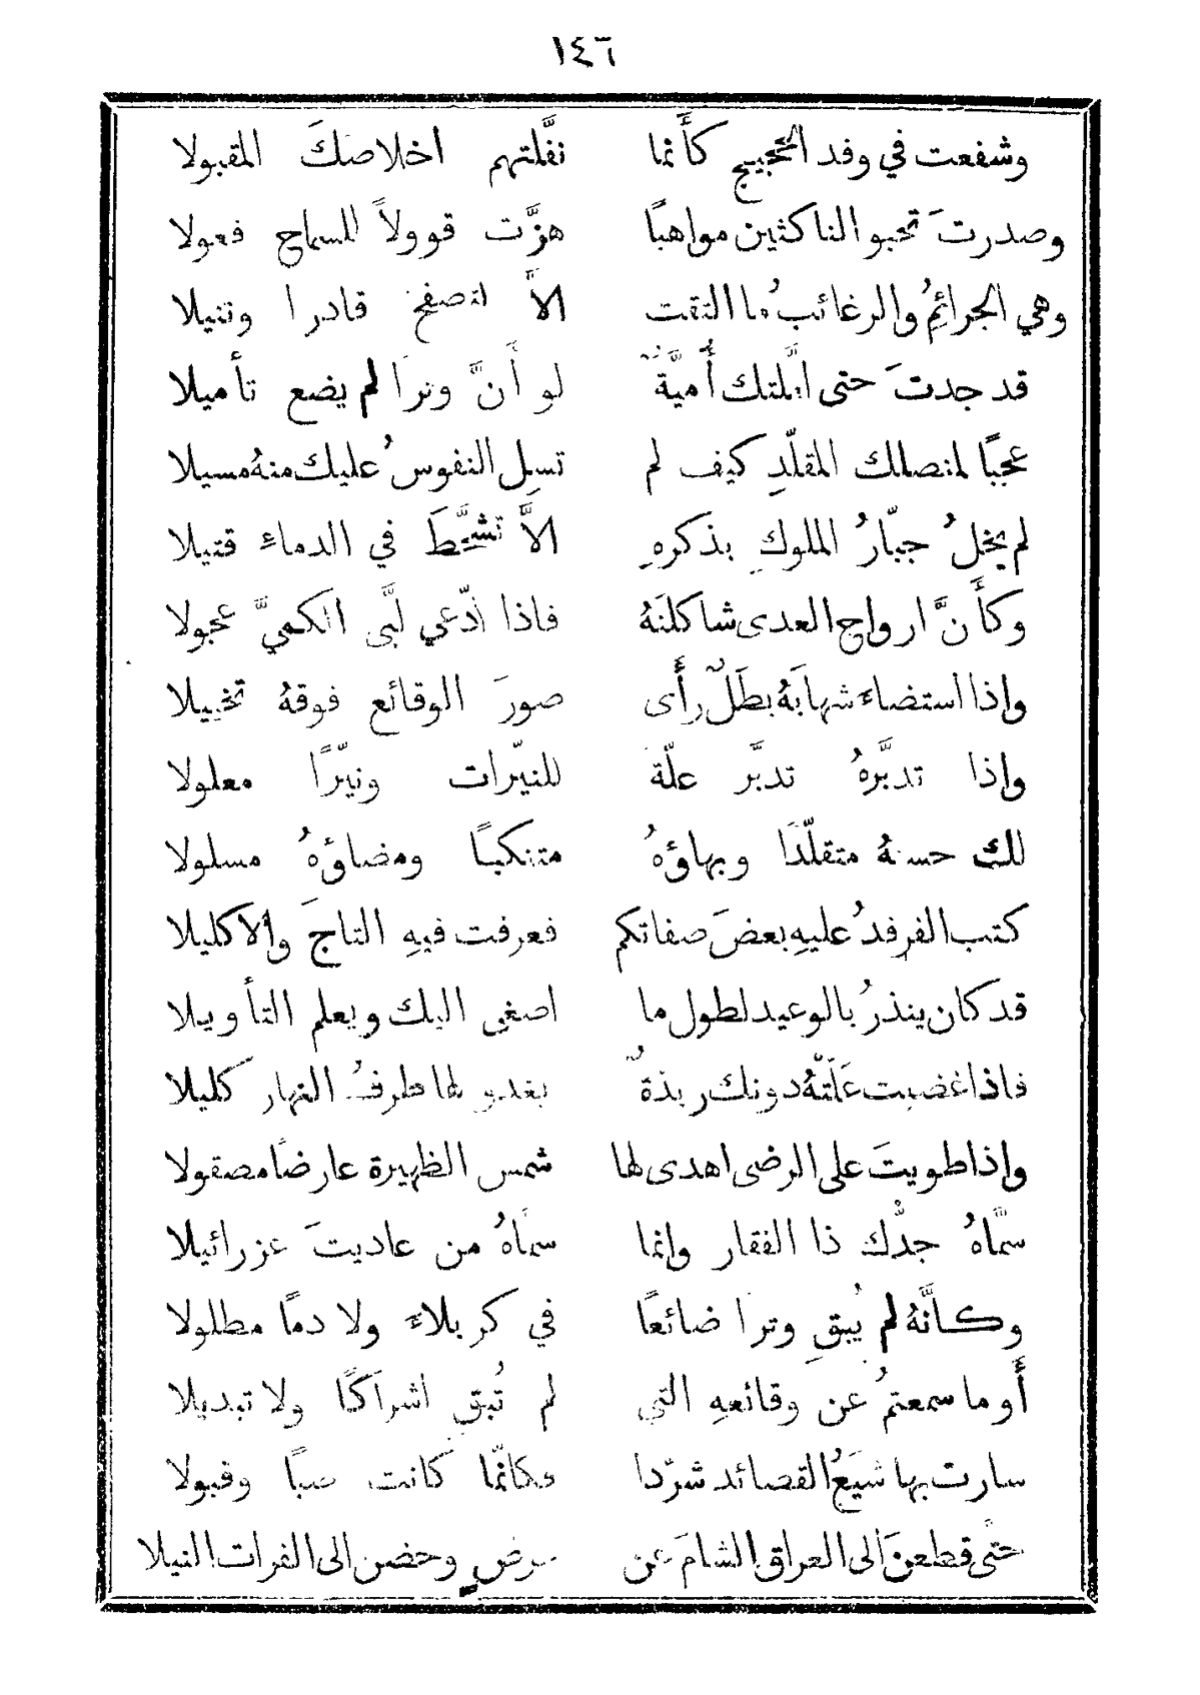 ١٤٦
وشفعت في وفد الحجيج كأَنما نفَّلتهم اخلاصكَ المقبولا
وصدرتَ تحبو الناكثين مواهبًا هزَّت قوولاً للسماح فعولا
وهي الجرائمُ والرغائبُ ما التقت الاَّ لتصفح قادرا وتنيلا
قد جدتَ حتى املتك أُميَّةٌ لو أَنَّ وترا لم يضع تأميلا
عجبًا لمنصلك المقلّدِ كيف لم تسلِ النفوسُ عليك منهُ مسيلا
لم يخلُ جبّارُ الملوكِ بذكرهِ الاَّ تشحَّطَ في الدماءِ قتيلا
وكأَنَّ ارواح العدى شاكلنَهُ فاذا ادّعي لبَّى الكميَّ عجولا
واذا استضاءَ شهابَهُ بطَلٌ رأَى صورَ الوقائع فوقهُ تخييلا
واذا تدبَّرهُ تدبَّر علّة للنيّرات ونيّرًا معلولا
لك حسنهُ متقلّدًا وبهاؤهُ متنكبًا ومضاؤهُ مسلولا
كتب الفرفدُ عليهِ بعضَ صفاتكم فعرفت فيهِ التاجَ والاكليلا
قد كان ينذرُ بالوعيد لطول ما اصغى اليك ويعلم التأويلا
فاذا غضبت عَلَتْهُ دونك ربذةٌ يغدو لها طرفُ النهار كليلا
واذا طويتَ على الرضى اهدى لها شمس الظهيرة عارضًا مصقولا
سمَّاهُ جدُّك ذا الفقار وانما سمّاهُ من عاديتَ عزرائيلا
وكأَنَّهُ لم يُبقِ وترا ضائعًا في كربلاءَ ولا دمًا مطلولا
أَوما سمعتمُ عن وقائعهِ التي لم تُبقِ اشراكًا ولا تبديلا
سارت بها شيَعُ القصائد شرّدا فكانّما كانت صبًا وقبولا
حتى قطعنَ الى العراق الشامَ عن عرض وخضن الى الفرات النيلا